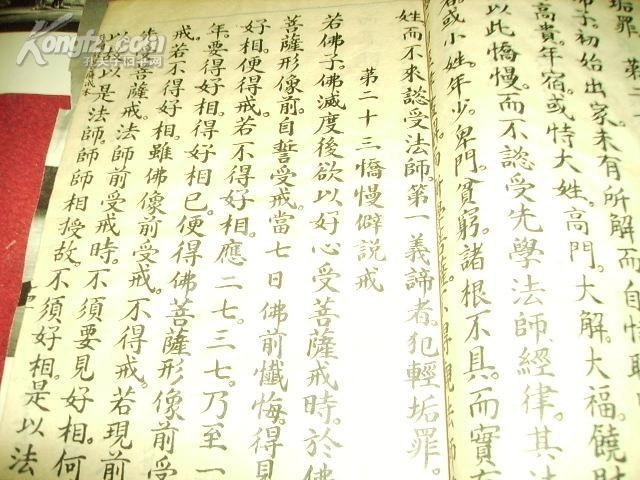 垢罪。 第
子。初始出家。未有所解。而自恃
高貴。年宿。或恃大姓。高門。大解。大福。饒財
以此憍慢。而不諮受先學法師。經律。其法
或小姓。年少。卑門。貧窮。諸根不具。而實有
不得觀法師
姓而不來諮受法師。第一義諦者。犯輕垢罪。
第二十三憍慢僻說戒
若佛子。佛滅度後欲以好心受菩薩戒時。於佛
菩薩形像前。自誓受戒。當七日佛前懺悔。得見
好相。便得戒。若不得好相。應二七。三七。乃至一
年。要得好相。得好相已。便得佛菩薩形像前受
戒。若不得好相。雖佛像前受戒。不得戒。若現前
菩薩戒。法師前受戒時。不須要見好相。何
以以是法師。師師相授故。不須好相。是以法
Kongfz.com
孔夫子旧书网